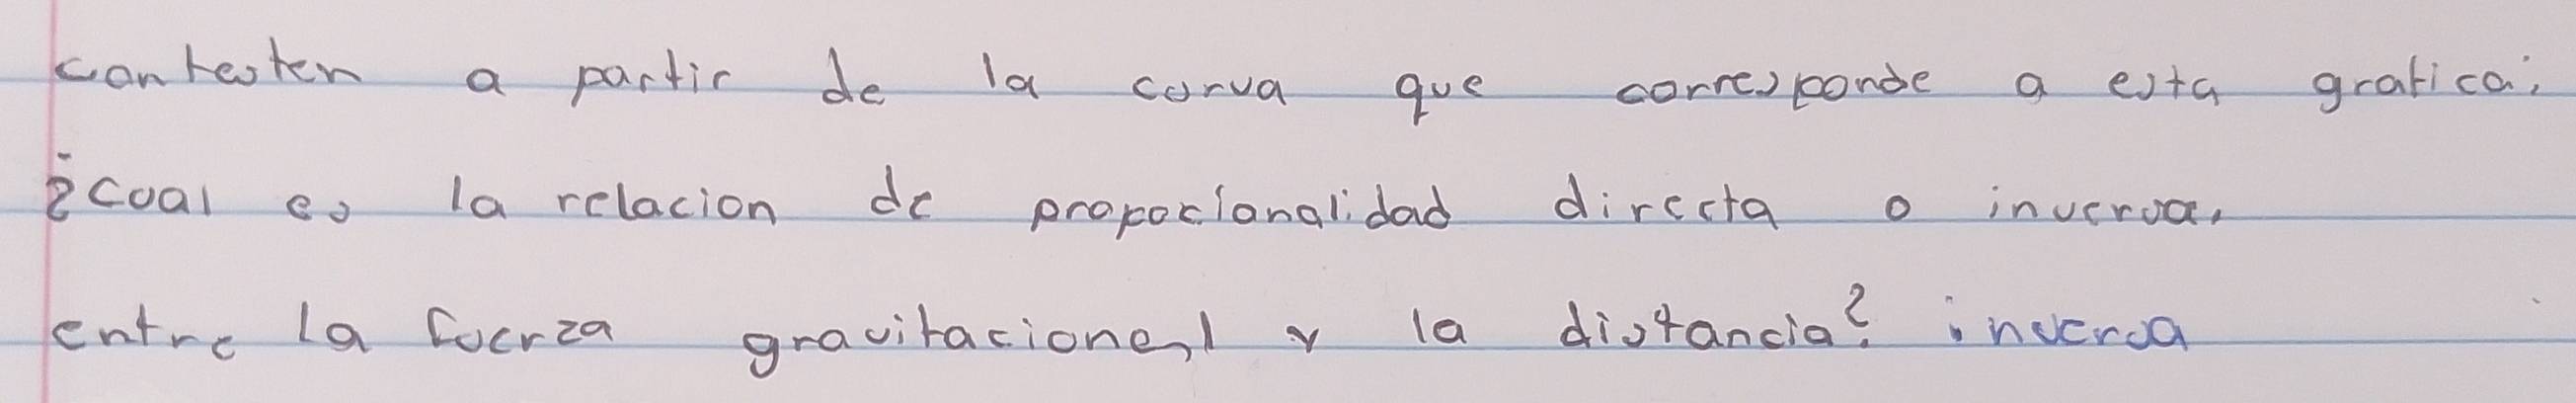 contesten a partir de la curva que corresponde a esta grafica:
¿cual es la relacion de propocionalidad directa o inversa,
entre la fuerza gravitacional y la distancia? inversa